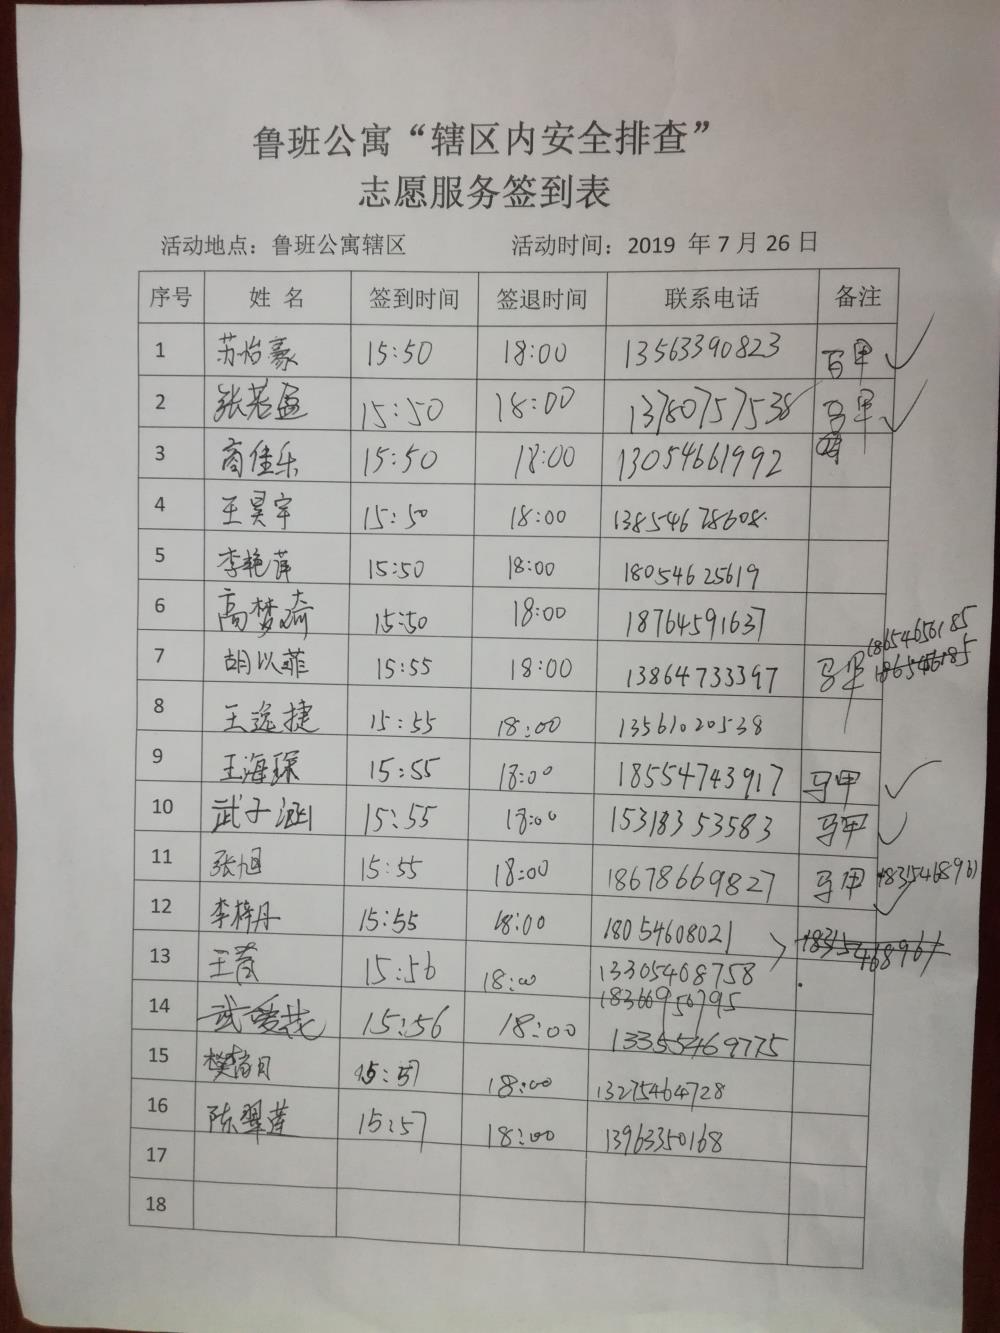 鲁班公寓“辖区内安全排查”
志愿服务签到表
活动地点：鲁班公寓辖区 活动时间：2019 年 7 月 26 日
序号 姓 名 签到时间 签退时间 联系电话 备注
1 苏怡豪 15:50 18:00 13563390823 马甲 ✓
2 张若盈 15:50 18:00 13780757538 马甲 ✓
3 商佳乐 15:50 18:00 13054661992
4 王昊宇 15:50 18:00 13854678608
5 李艳萍 15:50 18:00 18054625619
6 高梦琦 15:50 18:00 18764591637
18654656185
7 胡以菲 15:55 18:00 13864733397 马甲
8 王远捷 15:55 18:00 13561020538
9 王海琛 15:55 18:00 18554743917 马甲 ✓
10 武子涵 15:55 18:00 15318353583 马甲 ✓
11 张旭 15:55 18:00 18678669827 马甲 18315468961 ✓
12 李梓丹 15:55 18:00 18054608021 18315468961
13 王茵 15:56 18:00 13305408758
18366950795
14 武爱花 15:56 18:00 13355469775
15 15:57 18:00 13275464728
16 陈翠莲 15:57 18:00 13963350168
17
18